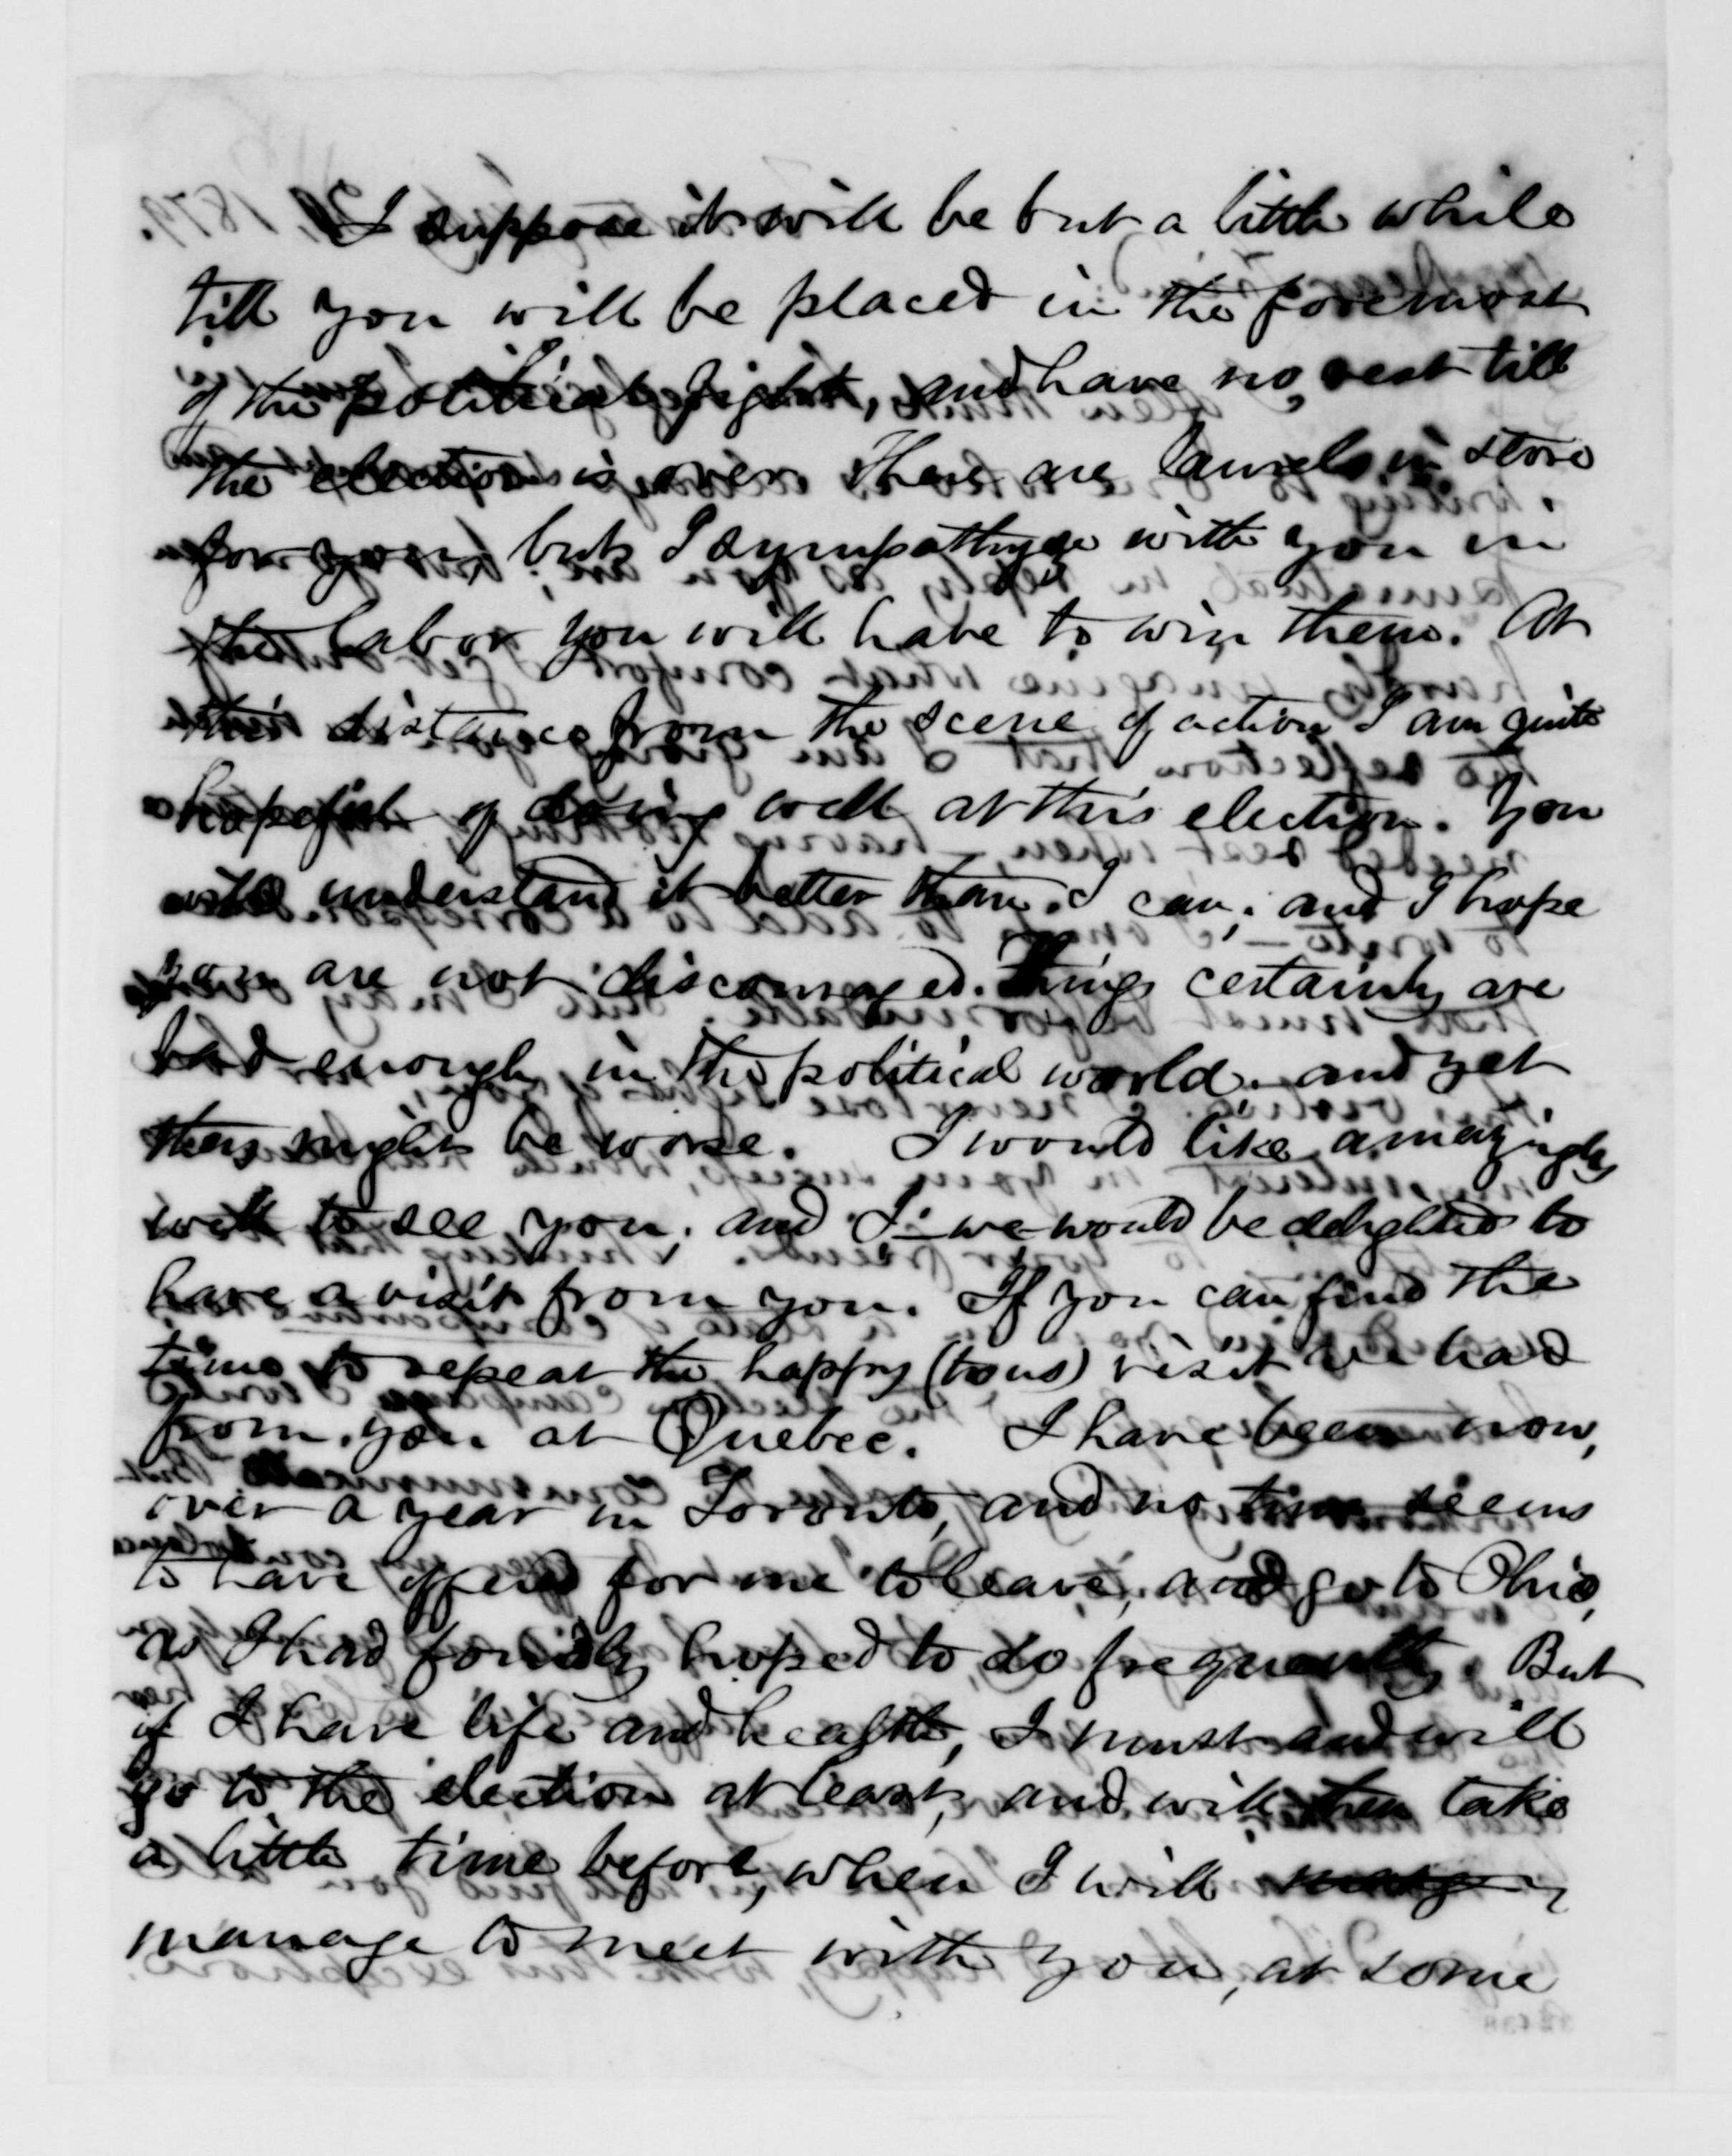 I suppose it will be but a little while
till you will be placed in the foremost
of the political fight, and have no rest till
the election is over. There are laurels in store
for you, but I sympathyze with you in
the labor you will have to win them. At
this distance from the scene of action I am quite
hopeful of doing well at this election. You
will understand it better than I can; and I hope
you are not discouraged. Things certainly are
bad enough in the political world - and yet
they might be worse. I would like amazingly
well to see you; and I - we would be delighted to
have a visit from you. If you can find the
time to repeat the happy (to us) visit we had
from you at Quebec. I have been now,
over a year in Toronto, and no time seems
to have offered for me to leave, and go to Ohio,
as I had fondly hoped to do frequently. But
if I have life and health, I must and will
go to the election at least, and will then take
a little time before, when I will
manage to meet with you, at some